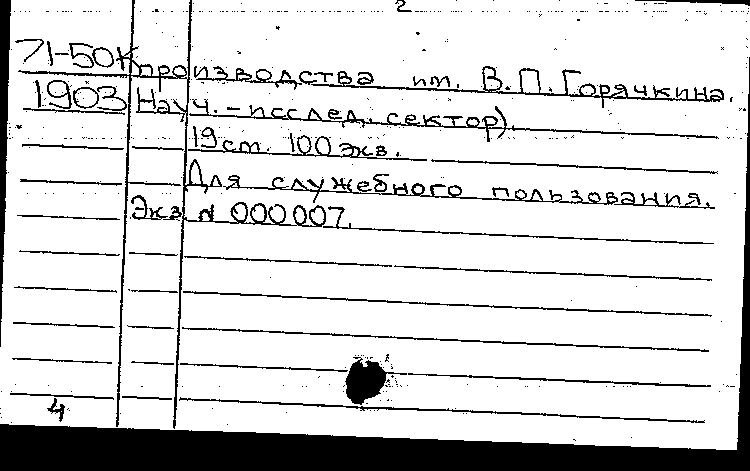 2
71-50К производства им. В.П.Горячкина.
1903 Науч.-исслед. сектор).
19 cm. 100 экз.
Для служебного пользования.
Экз. N 000007.
4